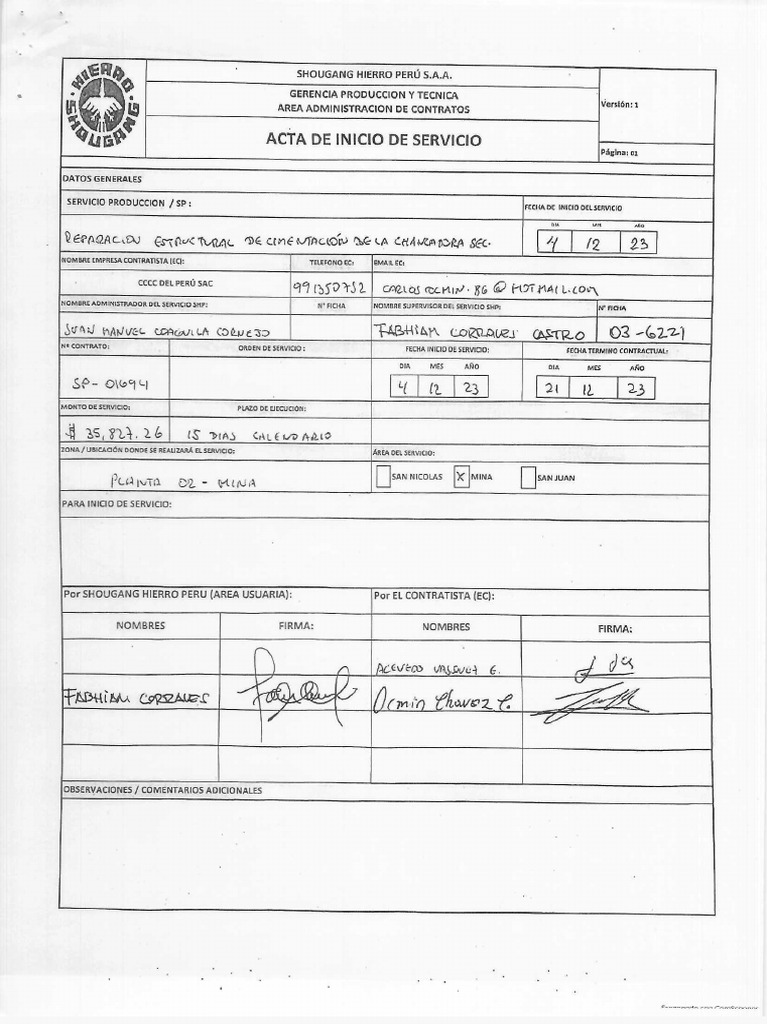 HIERRO
SHOUGANG
SHOUGANG HIERRO PERÚ S.A.A.
GERENCIA PRODUCCION Y TECNICA
AREA ADMINISTRACION DE CONTRATOS
Versión: 1
ACTA DE INICIO DE SERVICIO
Página: 01
DATOS GENERALES
SERVICIO PRODUCCION / SP :
FECHA DE INICIO DEL SERVICIO
DIA MES AÑO
REPARACION ESTRUCTURAL DE CIMENTACIÓN DE LA CHANCADORA SEC.
4 12 23
NOMBRE EMPRESA CONTRATISTA (EC): TELEFONO EC: EMAIL EC:
CCCC DEL PERÚ SAC 991350752 CARLOSOCMIN.86@HOTMAIL.COM
NOMBRE ADMINISTRADOR DEL SERVICIO SHP: N° FICHA NOMBRE SUPERVISOR DEL SERVICIO SHP: N° FICHA
JUAN MANUEL COAQUILA CORNEJO FABHIAM CORRALES CASTRO 03-6221
Nº CONTRATO: ORDEN DE SERVICIO : FECHA INICIO DE SERVICIO: FECHA TERMINO CONTRACTUAL:
DIA MES AÑO DIA MES AÑO
SP-01694 4 12 23 21 12 23
MONTO DE SERVICIO: PLAZO DE EJECUCIÓN:
$ 35,827.26 15 DIAS CALENDARIO
ZONA / UBICACIÓN DONDE SE REALIZARÁ EL SERVICIO: ÁREA DEL SERVICIO:
PLANTA 02 - MINA SAN NICOLAS X MINA SAN JUAN
PARA INICIO DE SERVICIO:
Por SHOUGANG HIERRO PERU (AREA USUARIA): Por EL CONTRATISTA (EC):
NOMBRES FIRMA: NOMBRES FIRMA:
ACEVEDO VASQUEZ E.
FABHIAM CORRALES Ocmin Chavez C.
OBSERVACIONES / COMENTARIOS ADICIONALES